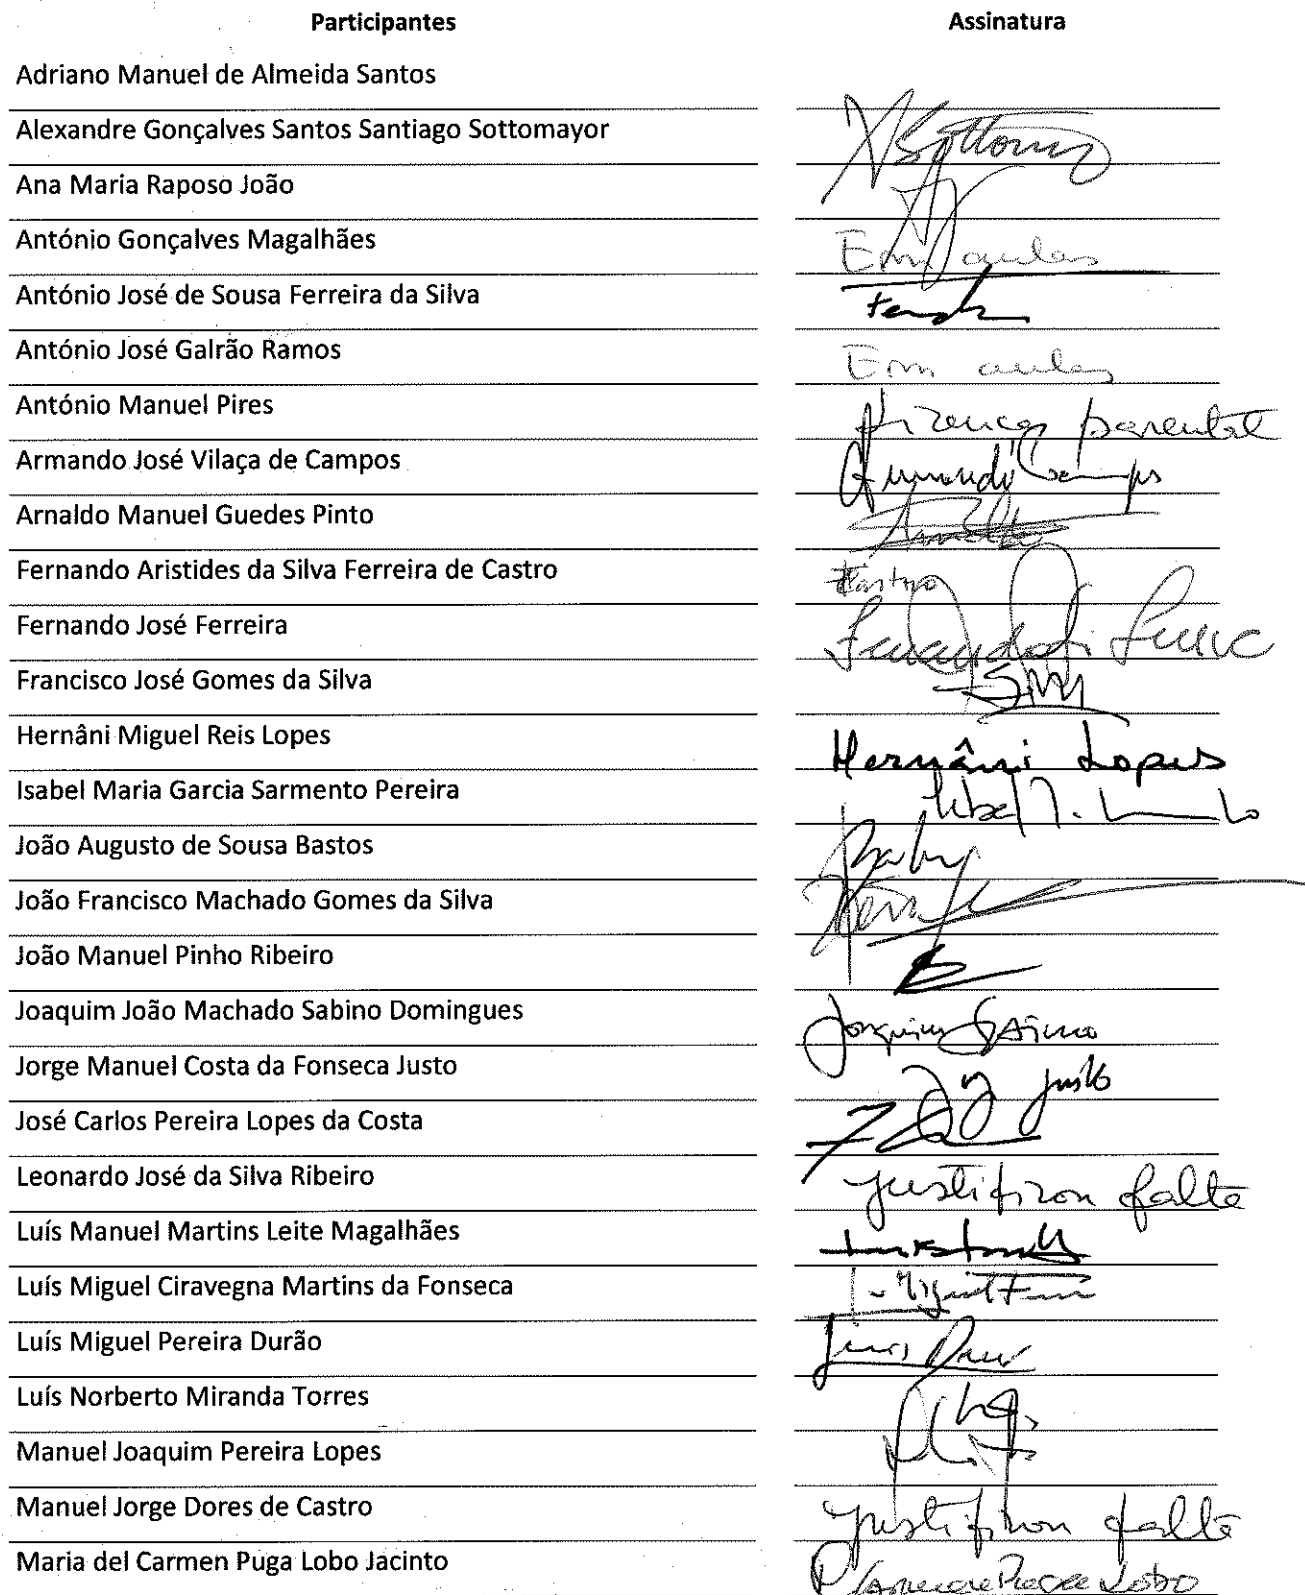 Participantes Assinatura
Adriano Manuel de Almeida Santos
Alexandre Gonçalves Santos Santiago Sottomayor
Ana Maria Raposo João
António Gonçalves Magalhães Em aulas
António José de Sousa Ferreira da Silva
António José Galrão Ramos Em aulas
António Manuel Pires parental
Armando José Vilaça de Campos Armando Campos
Arnaldo Manuel Guedes Pinto
Fernando Aristides da Silva Ferreira de Castro
Fernando José Ferreira
Francisco José Gomes da Silva
Hernâni Miguel Reis Lopes Hernâni Lopes
Isabel Maria Garcia Sarmento Pereira
João Augusto de Sousa Bastos
João Francisco Machado Gomes da Silva
João Manuel Pinho Ribeiro
Joaquim João Machado Sabino Domingues Joaquim
Jorge Manuel Costa da Fonseca Justo Justo
José Carlos Pereira Lopes da Costa
Leonardo José da Silva Ribeiro justificou falta
Luís Manuel Martins Leite Magalhães
Luís Miguel Ciravegna Martins da Fonseca
Luís Miguel Pereira Durão
Luís Norberto Miranda Torres
Manuel Joaquim Pereira Lopes
Manuel Jorge Dores de Castro justificou falta
Maria del Carmen Puga Lobo Jacinto Lobo